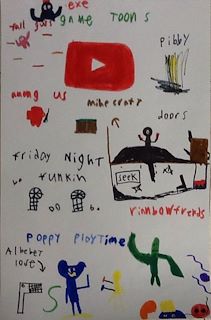 exe
fall guys
game toons
pibby
among us
minecraft
doors
friday night
funkin
seek
rinnbowfrends
poppy playtime
Alfebet
lore
F